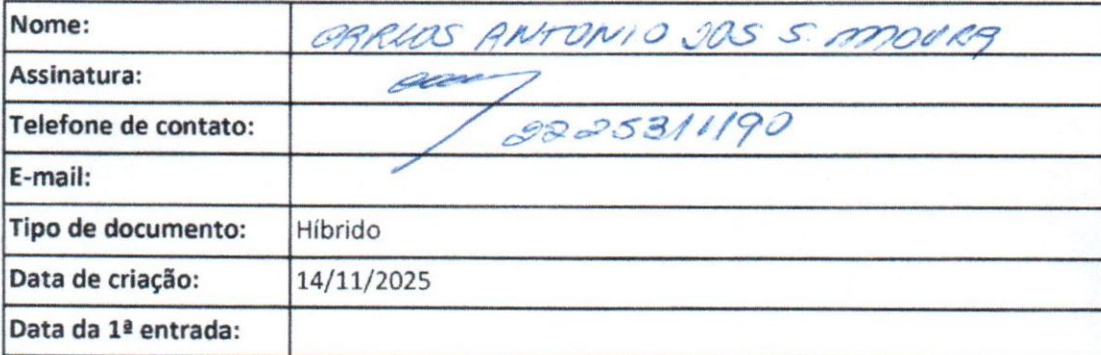 Nome: CARLOS ANTONIO DOS S. MOURA
Assinatura:
Telefone de contato: 2225311190
E-mail:
Tipo de documento: Híbrido
Data de criação: 14/11/2025
Data da 1ª entrada: